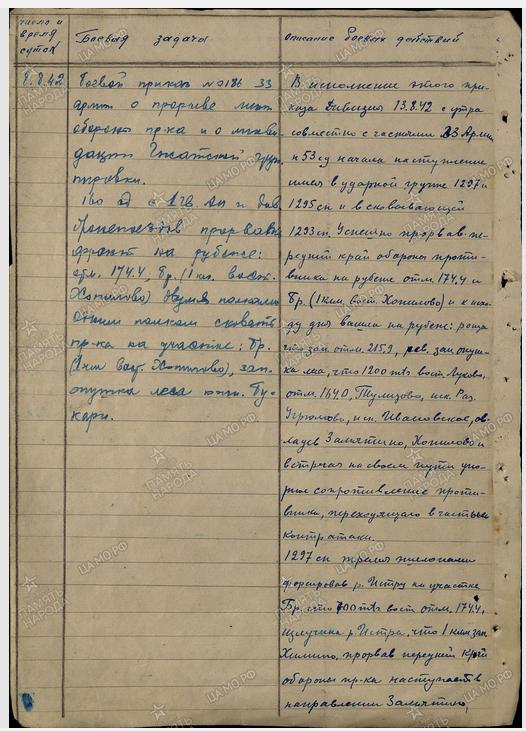 число и
время
суток
Боевая задача
Описание боевых действий
8.8.42
Боевой приказ №0186 33
армии о прорыве
обороны пр-ка и о ликви
дации Гжатской груп
пировки.
160 сд с
бронепоездов прорвать
фронт на рубеже:
отм. 174.4, Бр. (1 км. вост.
Хопилово) двумя полками
одним полком сковать
пр-ка на участке: Бр.
(1 км вост. Хопилово), зап.
опушка леса южн. Бу-
кари.
В исполнение этого при-
каза Дивизия 13.8.42 с утра
совместно с частями 33 Армии
и 53 сд начала наступление
имея в ударной группе 1297 и
1295 сп и в сковывающей
1293 сп. Успешно прорвав пе-
редний край обороны проти-
вника на рубеже отм. 174.4 и
Бр. (1 км. вост. Хопилово) и к исхо-
ду дня вышла на рубеже: роща
что зап отм. 215.9, зап. опуш-
ка леса, что 1200 mt вост.
отм. 164.0, Тулизово, иск. Раз.
Угрюмово, иск. Ивановское, ов-
ладев Замятино, Хопилово и
встречая на своем пути упо-
рное сопротивление проти-
вника, переходящего в частые
контратаки.
1297 сп тремя эшелонами
форсировав р. Истру на участке
Бр. что 700 mt вост отм. 174.4.
излучина р. Истра, что 1 км зап
прорвав передний край
обороны пр-ка наступает в
направлении Замятино,
ПАМЯТЬ
НАРОДА
ЦАМО РФ